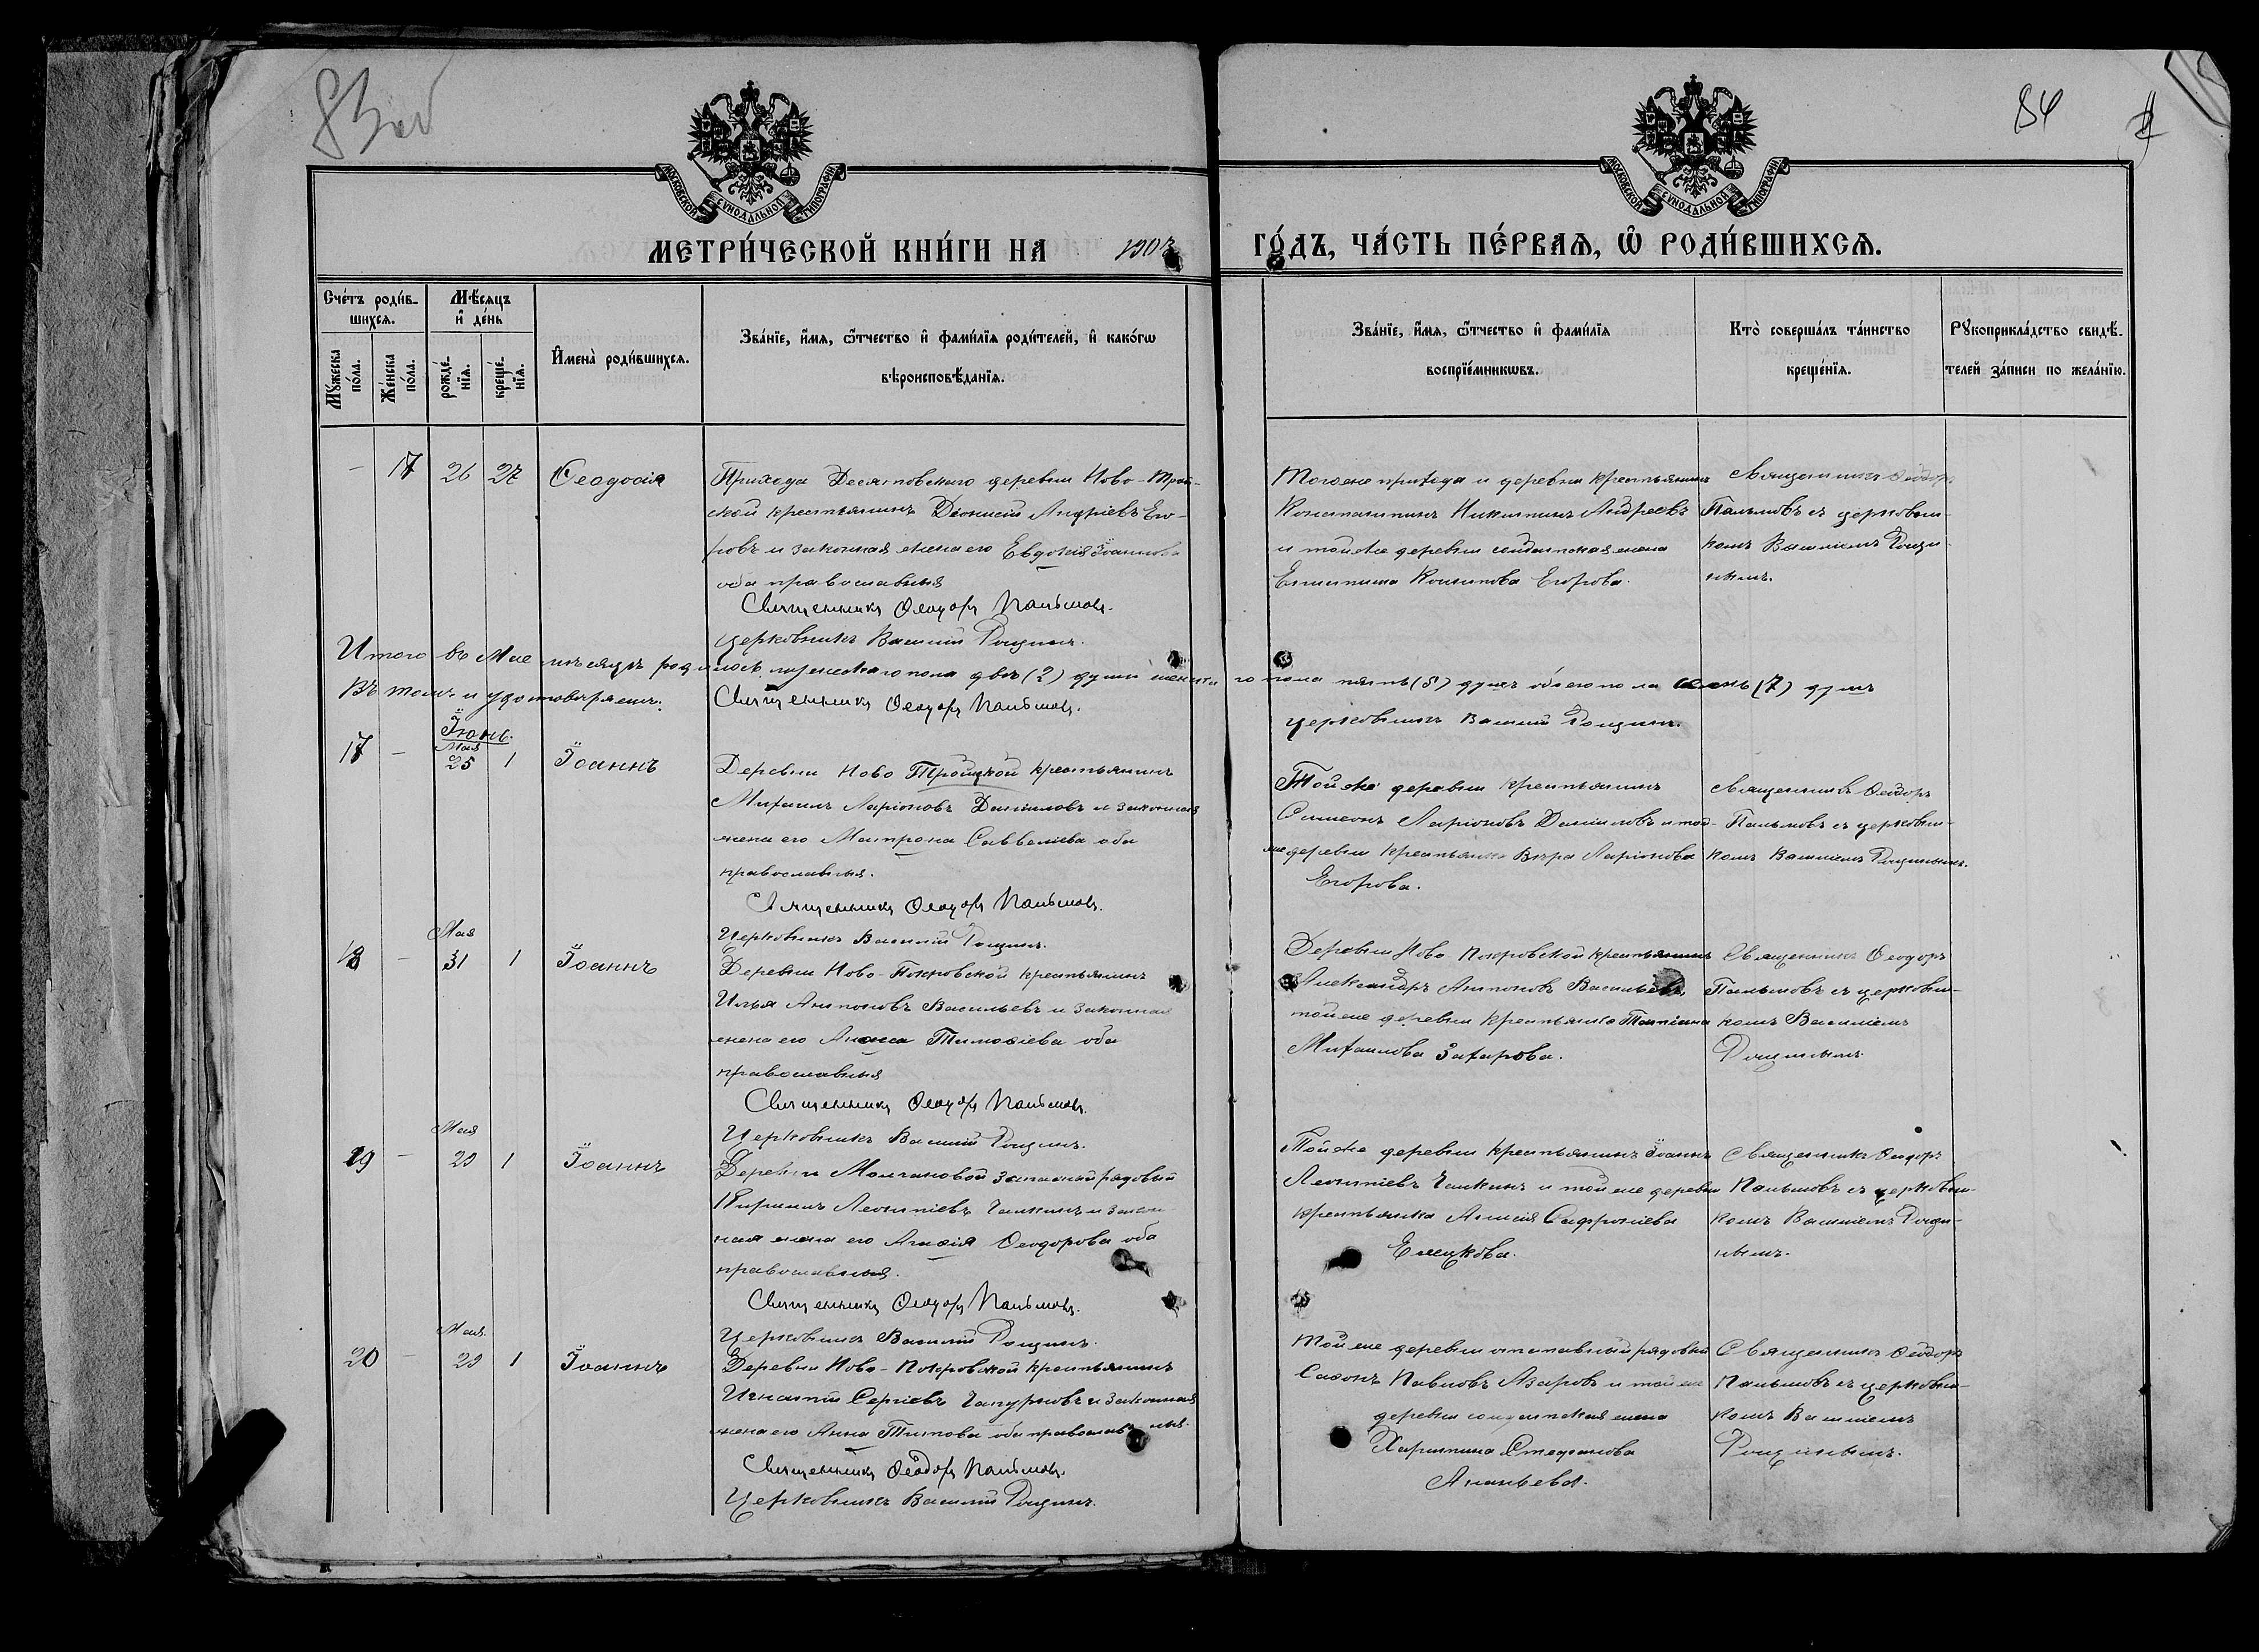 83об
84
МОСКОВСКОЙ СѴНОДАЛЬНОЙ ТИПОГРАФІИ
МОСКОВСКОЙ СѴНОДАЛЬНОЙ ТИПОГРАФІИ
МЕТРИ́ЧЕСКОЙ КНИ́ГИ НА 190
ГО́ДЪ, ЧА́СТЬ ПЕ́РВАЯ, Ѡ РОДИ́ВШИХСЯ.
Сче́тъ роди́в-
шихся.
Мѣ́сяцъ
и҆ де́нь
Мꙋ́жеска по́ла.
Же́нска по́ла.
рожде́-нїя.
креще́-нїя.
И҆мена̀ роди́вшихся.
Зва́нїе, и҆́мя, ѻ҆́тчество и҆ фами́лїя роди́телей, и҆ како́гѡ
вѣроисповѣ́данїя.
Зва́нїе, и҆́мя, ѻ҆́тчество и҆ фами́лїя
воспрїе́мникѡвъ.
Кто̀ соверша́лъ та́инство
креще́нїя.
Рꙋкоприкла́дство свидѣ́-
телей за́писи по жела́нїю.
- 17 26 27 Ѳеодосія
Прихода Десятовскаго деревни Ново-Трои-
ской крестьянинъ Діонисій Андріевъ Его-
ровъ и законная жена его Евдокія Іоаннова
оба православныя
Священникъ Ѳеодоръ Пальмовъ.
Церковникъ Василій Рощинъ.
Тогоже прихода и деревни крестьянинъ
Константинъ Никитинъ Андреевъ
и тойже деревни солдатская жена
Егорова.
Священникъ Ѳеодоръ
Пальмовъ съ церковни-
комъ Василіемъ Рощи-
нымъ.
Итого въ Мае мѣсяцѣ родилось мужескаго пола двѣ (2) души женскаго пола пять (5) душъ обоего пола семь (7) душъ
Въ томъ и удостовѣряемъ: Священникъ Ѳеодоръ Пальмовъ.
церковникъ Василій Рощинъ.
Іюнь.
17 - Мая 25 1 Іоаннъ
Деревни Ново Троицкой крестьянинъ
Михаилъ Ларіоновъ Даниловъ и законная
жена его Матрона Савведіева оба
православныя.
Священникъ Ѳеодоръ Пальмовъ.
Церковникъ Василій Рощинъ.
Тойже деревни крестьянинъ
Симеонъ Ларіоновъ Даниловъ и той-
же деревни крестьянка Вѣра Ларіонова
Егорова.
Священникъ Ѳеодоръ
Пальмовъ съ церковни-
комъ Василіемъ Рощинымъ.
18 - Мая 31 1 Іоаннъ
Деревни Ново-Покровской крестьянинъ
Илья Антоновъ Васильевъ и законная
жена его Тимоѳіева оба
православныя
Священникъ Ѳеодоръ Пальмовъ.
Церковникъ Василій Рощинъ.
Деревни Ново Покровской крестьянинъ
Александръ Антоновъ Васильевъ
тойже деревни крестьянка Татіана
Михаилова Захарова.
Священникъ Ѳеодоръ
Пальмовъ съ церковни-
комъ Василіемъ
Рощинымъ.
19 - Мая 29 1 Іоаннъ
Деревни Молчановой запасный рядовый
Кириллъ Леонтіевъ Галкинъ и закон-
ная жена его Агаѳія Ѳеодорова оба
православныя.
Священникъ Ѳеодоръ Пальмовъ.
Церковникъ Василій Рощинъ.
Тойже деревни крестьянинъ Іоаннъ
Леонтіевъ Галкинъ и тойже деревни
крестьянка Сафроніева
Священникъ Ѳеодоръ
Пальмовъ съ церковни-
комъ Василіемъ Рощи-
нымъ.
20 - Мая 29 1 Іоаннъ
Деревни Ново-Покровской крестьянинъ
Игнатій Сергіевъ и законная
жена его Анна Титова оба православныя.
Священникъ Ѳеодоръ Пальмовъ.
Церковникъ Василій Рощинъ.
Тойже деревни отставный рядовый
Павловъ Азаровъ и тойже
деревни солдатская жена
Харитина Стефанова
Ананьева.
Священникъ Ѳеодоръ
Пальмовъ съ церковни-
комъ Василіемъ
Рощинымъ.